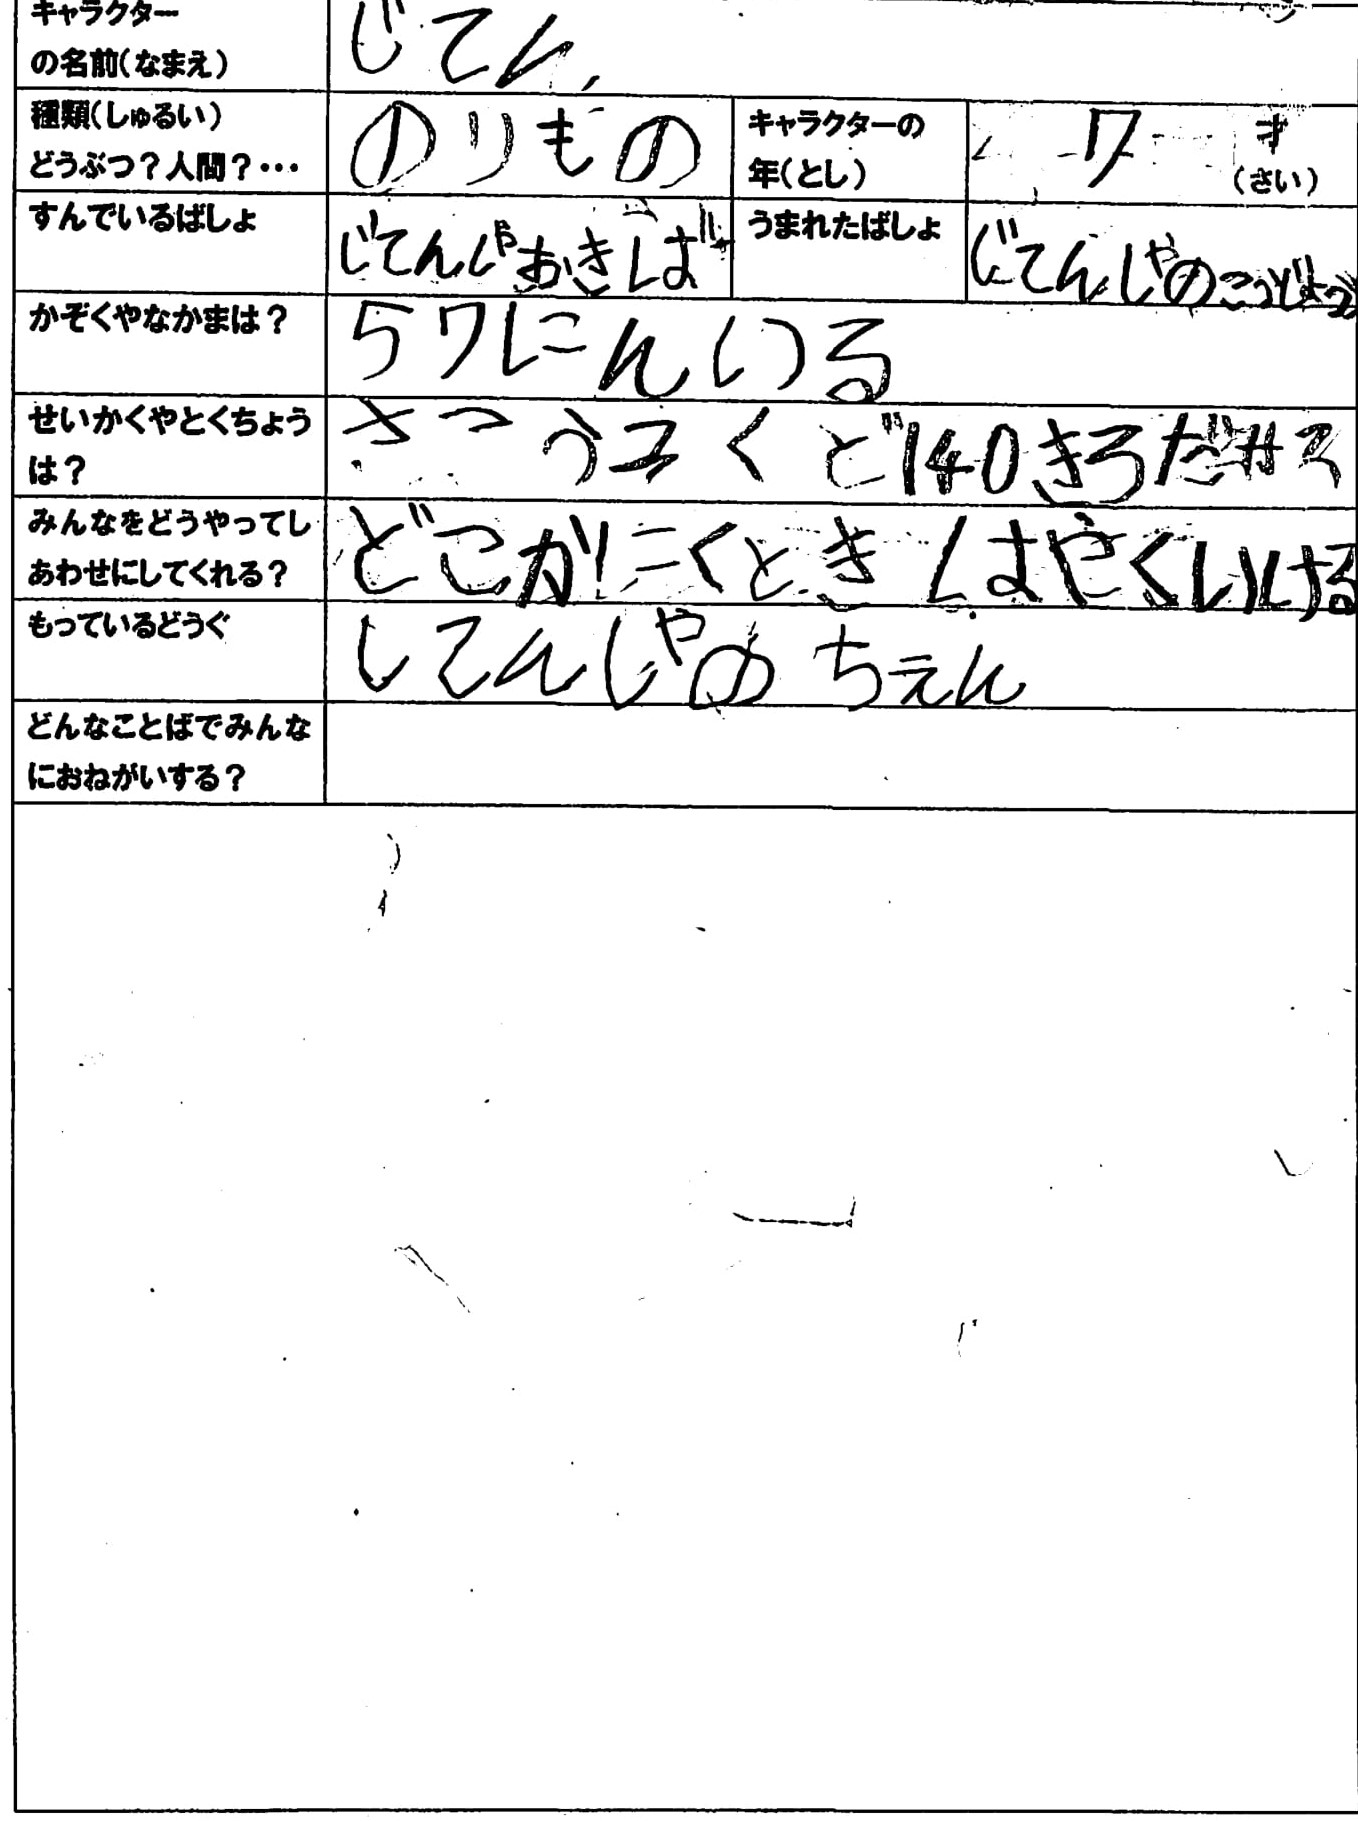 キャラクター
の名前(なまえ)
じてん
種類(しゅるい)
どうぶつ?人間?・・・
のりもの
キャラクターの
年(とし)
17 才
(さい)
すんでいるばしょ
じてんしゃおきば
うまれたばしょ
じてんしゃのこうじょう
かぞくやなかまは?
57にんいる
せいかくやとくちょう
は?
さいこうそくど140きろだせる
みんなをどうやってし
あわせにしてくれる?
どこかにくときはやくいける
もっているどうぐ
してんしゃのちえん
どんなことばでみんな
におねがいする?